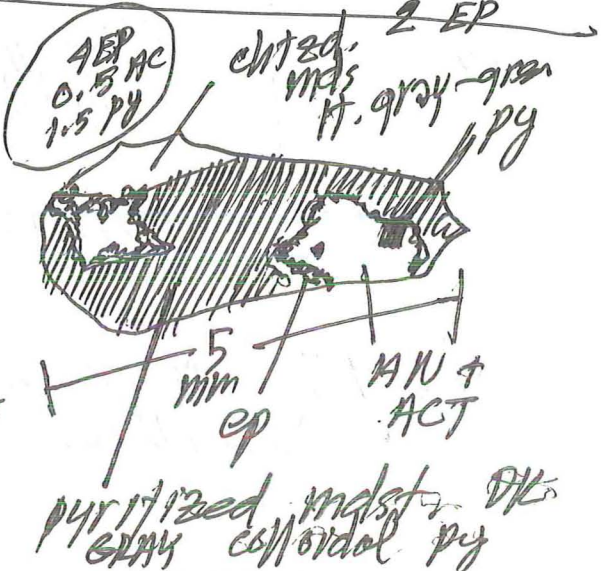 2 EP
4EP
0.5 AC
1.5 py
chtzd.
mds
lt. gray-grn
py
5
mm
ep
AN +
ACT
pyritized mdst, DK
GRAY colloidal py